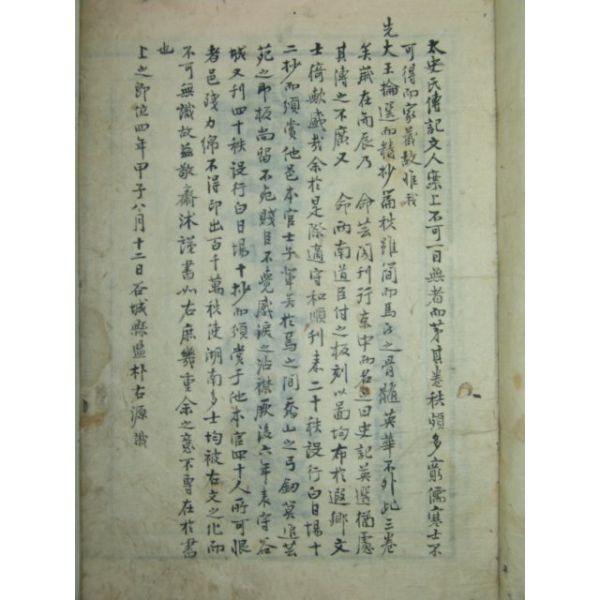 太史氏傳記文人案上不可一日無者而第其卷秩頗多窮儒寒士不
可得而家蓄故惟我
先大王掄選而精抄爾秩雖簡而馬子之骨髓英華不外此三卷
矣歲在丙辰乃 命芸閣刊行京中而名之曰史記英選猶慮
其傳之不廣又 命兩南道臣付之板刻以啚均布於遐鄕文
士猗歟盛哉余於是際適守和順刊来二十秩設行白日場十
二抄而頒賞他邑本官士子輩矣於焉之間喬山之弓釰莫追芸
苑之印板尙留不死賤臣不覺感淚之沾襟厥後六年来守谷
城又刊四十秩設行白日場十抄而頒賞于他本官四十人所可恨
者邑殘力綿不得印出百千萬秩使湖南多士均被右文之化而
不可無識故玆敬齋沐謹書如右庶幾重余之意不專在於書
也
上之卽位四年甲子八月十二日谷城縣監朴右源識